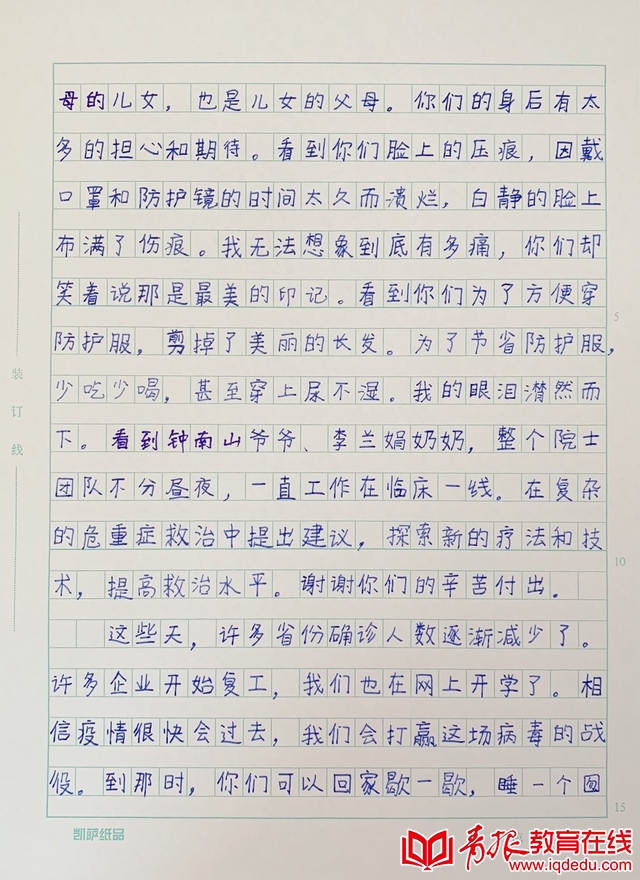 母的儿女，也是儿女的父母。你们的身后有太
多的担心和期待。看到你们脸上的压痕，因戴
口罩和防护镜的时间太久而溃烂，白静的脸上
布满了伤痕。我无法想象到底有多痛，你们却
笑着说那是最美的印记。看到你们为了方便穿
5
防护服，剪掉了美丽的长发。为了节省防护服，
少吃少喝，甚至穿上尿不湿。我的眼泪潸然而
下。看到钟南山爷爷、李兰娟奶奶，整个院士
团队不分昼夜，一直工作在临床一线。在复杂
的危重症救治中提出建议，探索新的疗法和技
10
术，提高救治水平。谢谢你们的辛苦付出.
这些天，许多省份确诊人数逐渐减少了。
许多企业开始复工，我们也在网上开学了。相
信疫情很快会过去，我们会打赢这场病毒的战
役。到那时，你们可以回家歇一歇，睡一个囫
15
装订线
凯萨纸品
青报教育在线
www.iqdedu.com